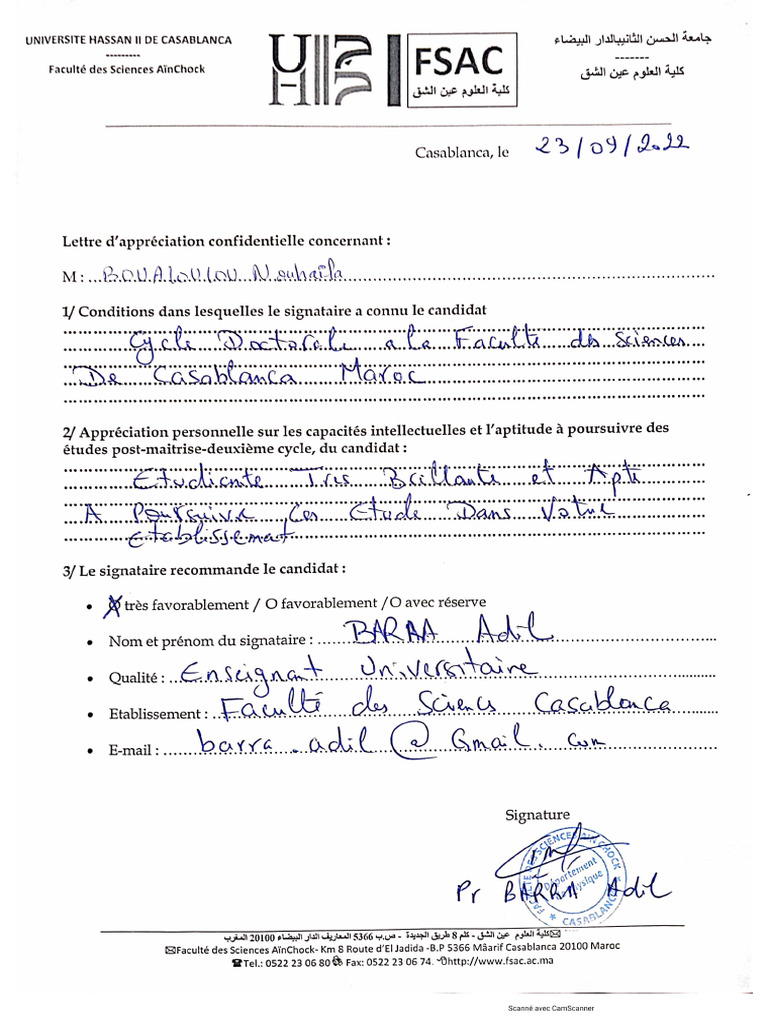 UNIVERSITE HASSAN II DE CASABLANCA
---------
Faculté des Sciences AïnChock
FSAC
كلية العلوم عين الشق
جامعة الحسن الثانيبالدار البيضاء
-------
كلية العلوم عين الشق
Casablanca, le 23/09/2022
Lettre d'appréciation confidentielle concernant :
M : BOUALOULOU Nouhaïla
1/ Conditions dans lesquelles le signataire a connu le candidat
Cycle Doctorale a la Faculte des Sciences
De Casablanca Maroc
2/ Appréciation personnelle sur les capacités intellectuelles et l'aptitude à poursuivre des
études post-maitrise-deuxième cycle, du candidat :
Etudiante Tres Brillante et Apte
A Poursuivre Ces Etude Dans Votre
Etablissemat
3/ Le signataire recommande le candidat :
• très favorablement / O favorablement /O avec réserve
• Nom et prénom du signataire : BARAA Adil
• Qualité : Enseignant Universitaire
• Etablissement : Faculté des Sciencs Casablanca
• E-mail : barra.adil@Gmail.com
Signature
FACULTE DES SCIENCES AIN CHOCK
Département
Physique
★ CASABLANCA ★
Pr BARAA Adil
كلية العلوم عين الشق - كلم 8 طريق الجديدة - ص.ب 5366 المعاريف الدار البيضاء 20100 المغرب
Faculté des Sciences AïnChock- Km 8 Route d'El Jadida -B.P 5366 Mâarif Casablanca 20100 Maroc
Tel.: 0522 23 06 80 Fax: 0522 23 06 74. http://www.fsac.ac.ma
Scanné avec CamScanner